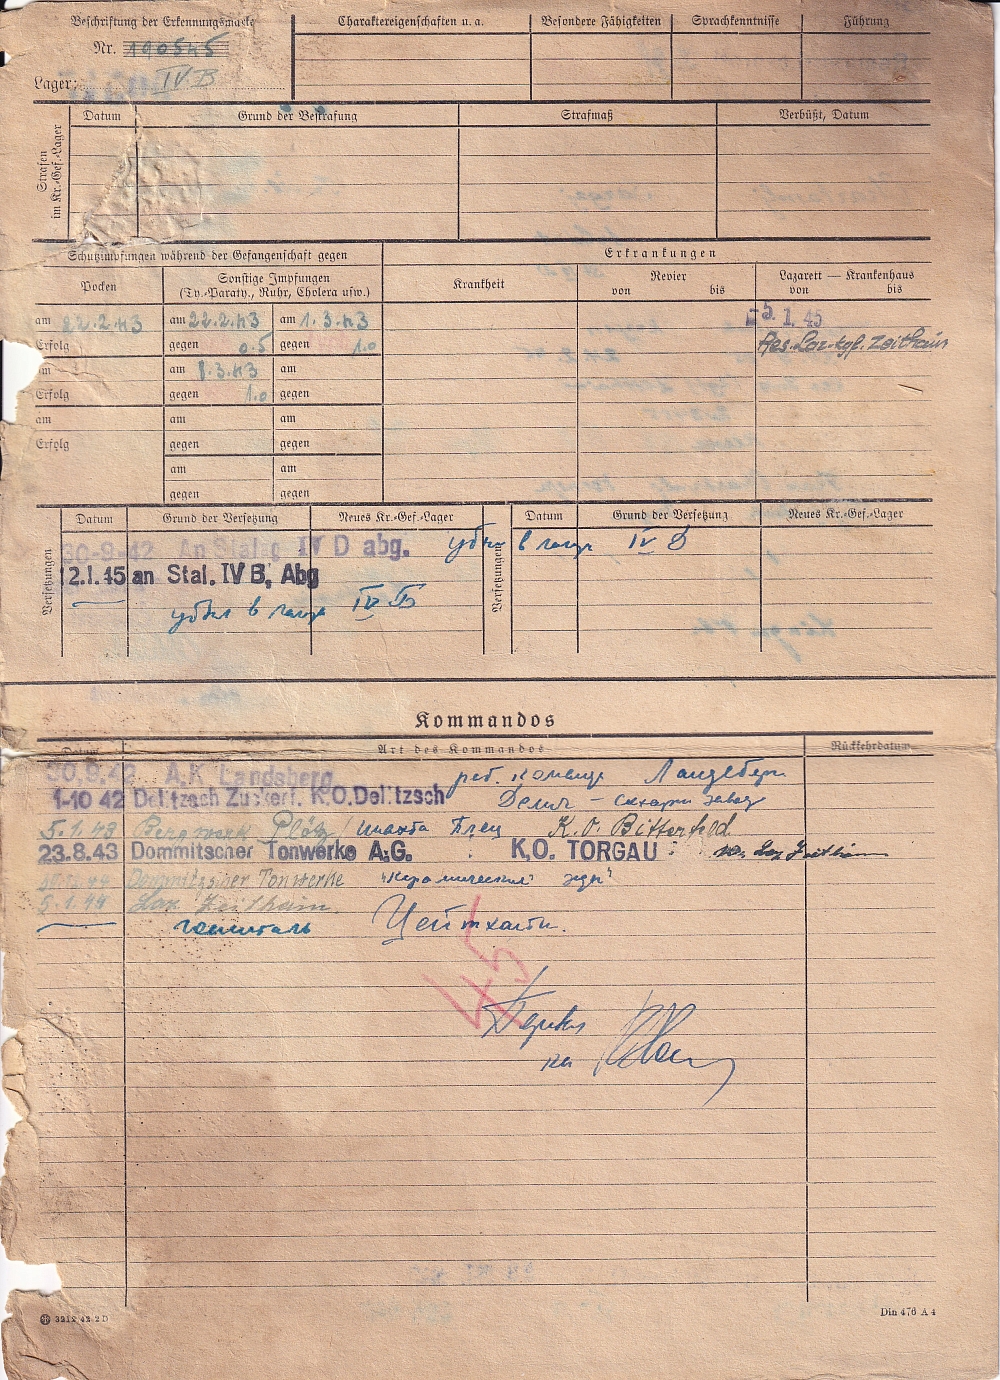 Beschriftung der Erkennungsmarke
Nr. 190545
Lager: IV B
Charaktereigenschaften u. a.
Besondere Fähigkeiten
Sprachkenntnisse
Führung
Strafen im Kr.-Gef.-Lager
Datum
Grund der Bestrafung
Strafmaß
Verbüßt, Datum
Schutzimpfungen während der Gefangenschaft gegen
Erkrankungen
Pocken
Sonstige Impfungen
(Ty.-Paraty., Ruhr, Cholera usw.)
Krankheit
Revier
von bis
Lazarett — Krankenhaus
von bis
am 22.2.43 am 22.2.43 am 1.3.43
5.1.45
Erfolg gegen 0.5 gegen 1.0
Res.-Laz.-kgf. Zeithain
am am 1.3.43 am
Erfolg gegen 1.0 gegen
am am am
Erfolg gegen gegen
am am
gegen gegen
Versetzungen
Datum
Grund der Versetzung
Neues Kr.-Gef.-Lager
Versetzungen
Datum
Grund der Versetzung
Neues Kr.-Gef.-Lager
30-9-42 An Stalag IV D abg. убыл в лагерь IV D
2.1.45 an Stal. IV B, Abg
убыл в лагерь IV B
Kommandos
Datum
Art des Kommandos
Rückkehrdatum
30.9.42 A.K Landsberg раб. команда Ландсберг
1-10 42 Delitzsch Zuckerf. K.O.Delitzsch Делич - сахарн завод
5.1.43 Bergwerk Plötz / шахта Плец K.O. Bitterfeld
23.8.43 Dommitscher Tonwerke A.G. K.O. TORGAU Laz. Zeithain
Dommitscher Tonwerke "керамический
5.1.44 Laz. Zeithain.
госпиталь Цейтхайн.
45
3212 42 2 D
Din 476 A 4